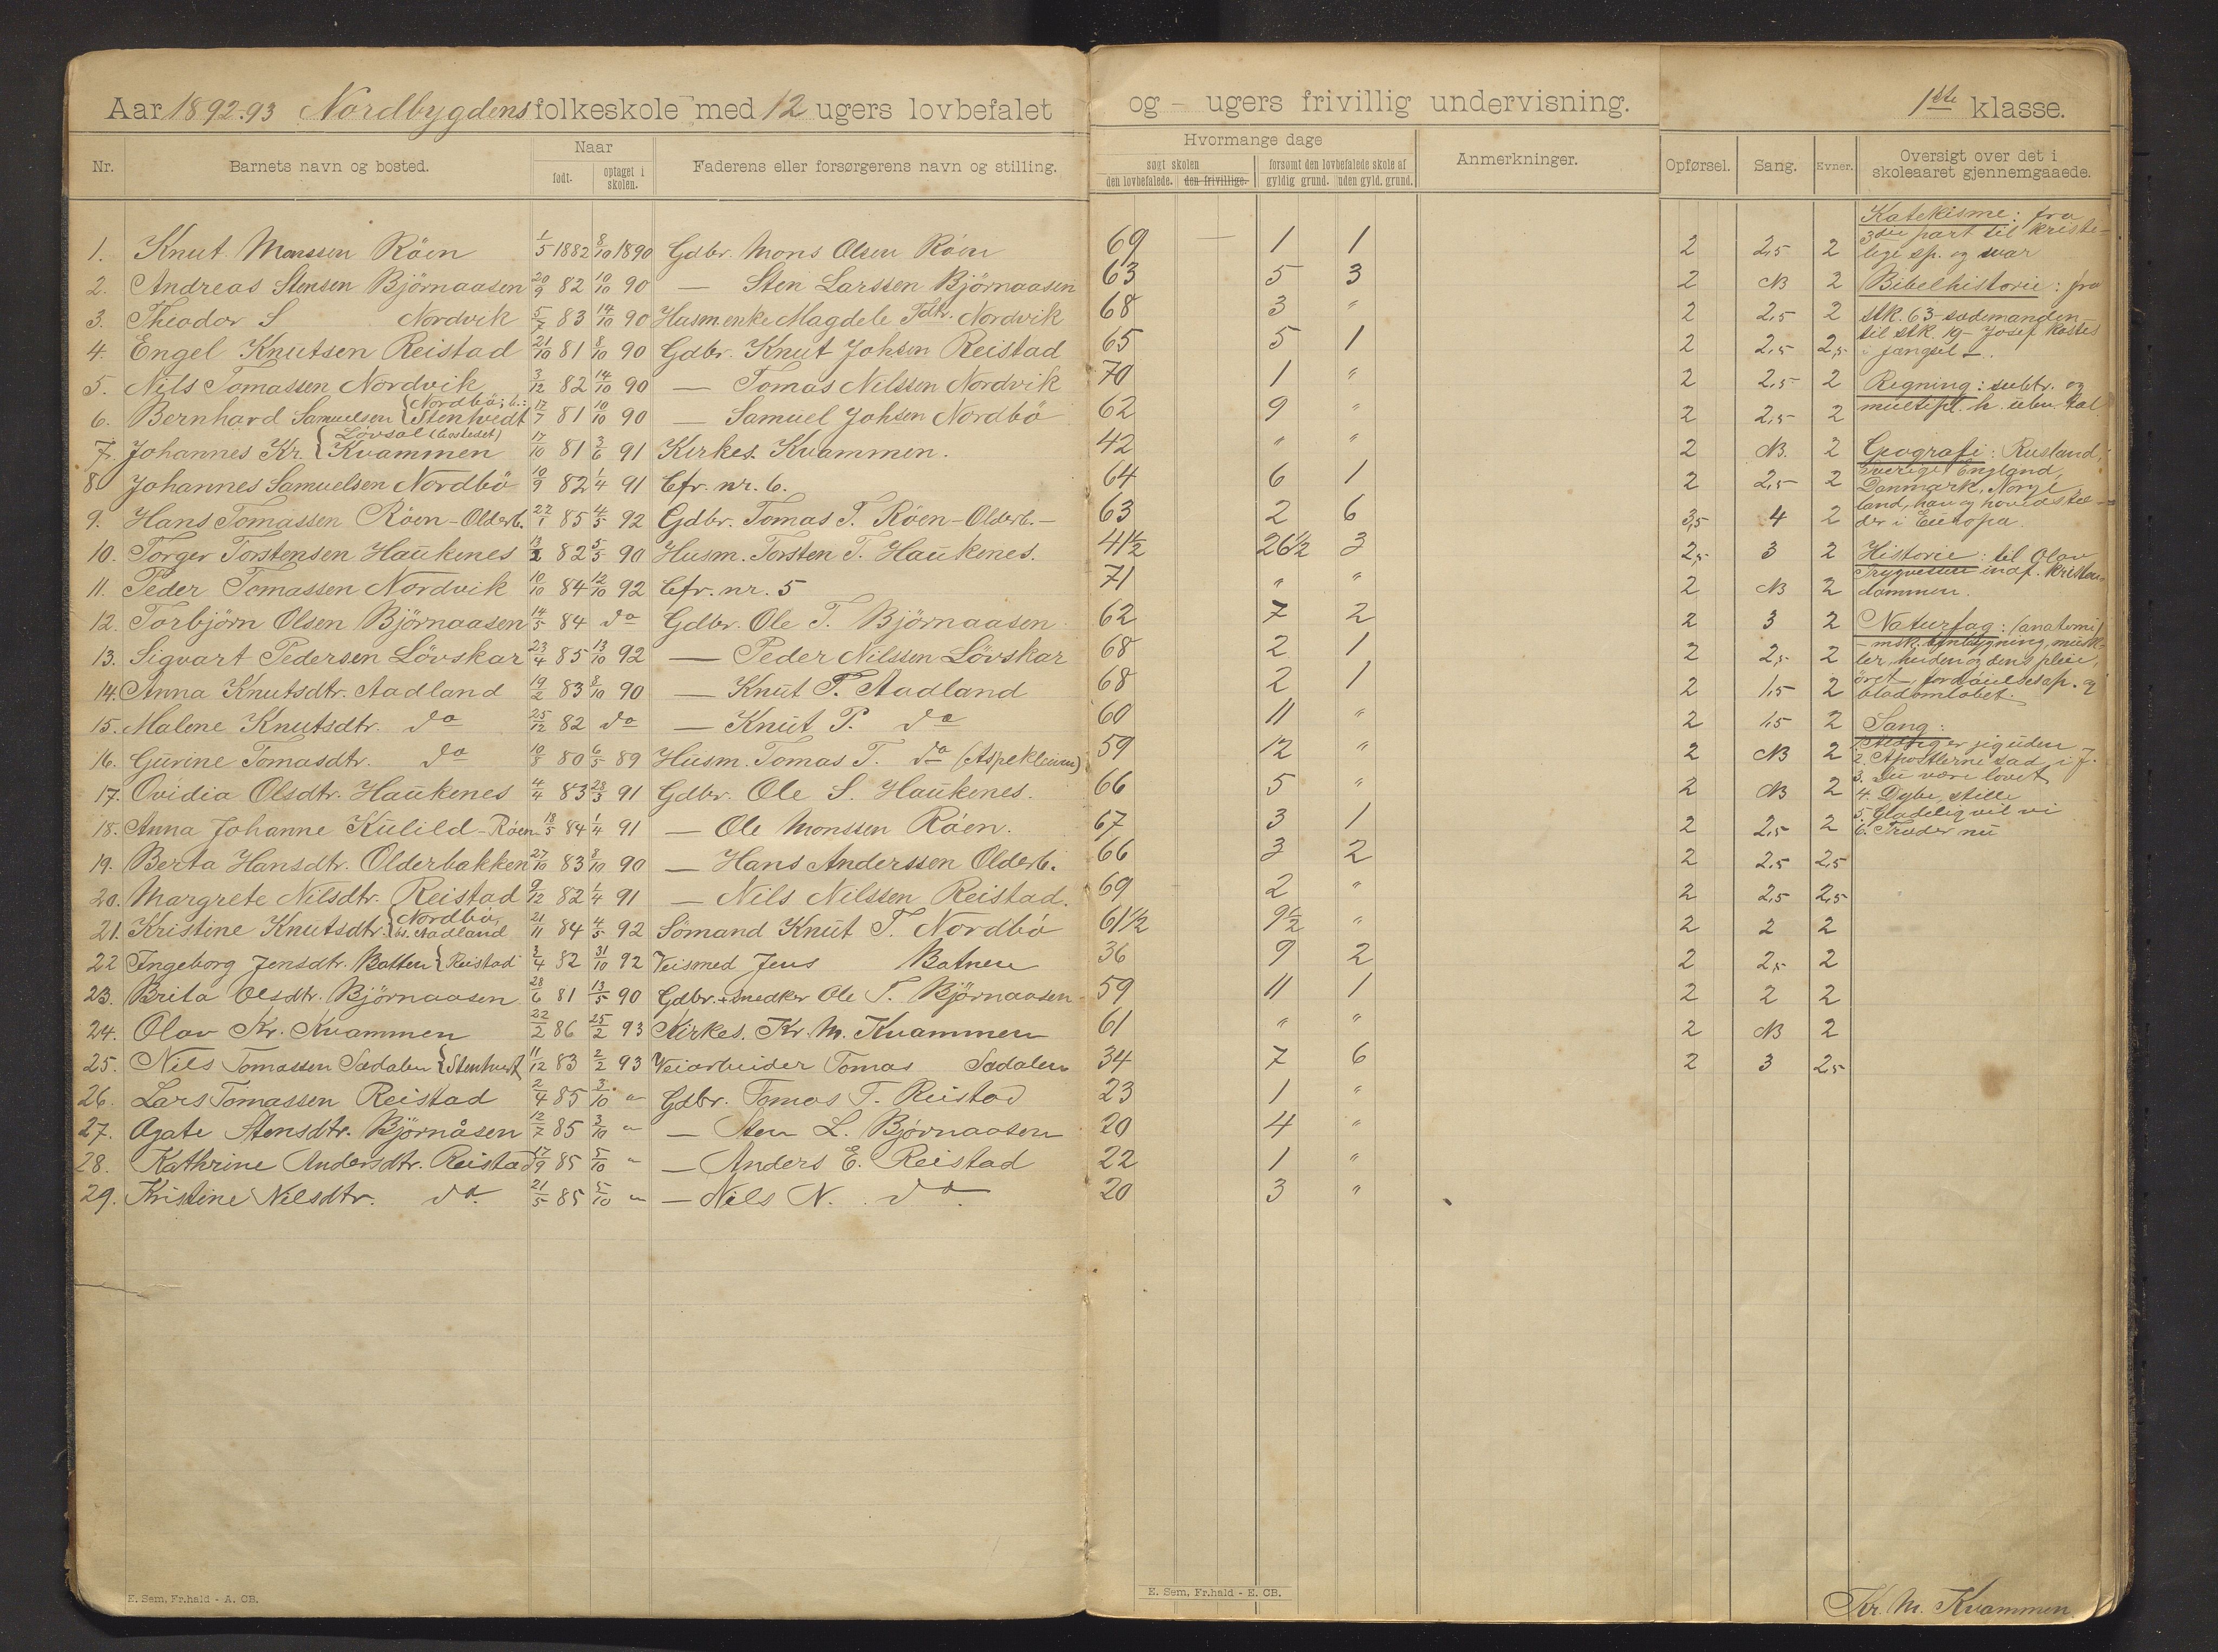 Aar 1892-93 Nordbygdens folkeskole med 12 ugers lovbefalet og - ugers frivillig undervisning. 1ste klasse.
Nr. Barnets navn og bosted. Naar født. optaget i skolen. Faderens eller forsørgerens navn og stilling. Hvormange dage søgt skolen den lovbefalede. den frivillige. forsømt den lovbefalede skole af gyldig grund. uden gyld. grund. Anmerkninger. Opførsel. Sang. Evner. Oversigt over det i skoleaaret gjennemgaaede.
1. Knut Monssen Röen 1/5 1882 8/10 1890 Gdbr. Mons Olsen Röen 69 — 1 1 2 2,5 2
2. Andreas Stensen Björnaasen 20/9 82 10/10 90 — Sten Larssen Björnaasen 63 5 3 2 NB 2
3. Theodor S Nordvik 5/7 83 14/10 90 Husm.enke Magdele Nordvik 68 3 " 2 2,5 2
4. Engel Knutsen Reistad 21/10 81 8/10 90 Gdbr. Knut Johsen Reistad 65 5 1 2 2,5 2,5
5. Nils Tomassen Nordvik 3/12 82 14/10 90 — Tomas Nilssen Nordvik 70 1 " 2 2,5 2
6. Bernhard Samuelsen { Nordbö; b.: Stenhvedt 17/7 81 10/10 90 — Samuel Johsen Nordbö 62 9 " 2 2,5 2
7. Johannes Kr. { Lövsöl (bostedet) Kvammen 17/10 81 3/6 91 Kirkes. Kvammen. 42 " " 2 NB. 2
8. Johannes Samuelsen Nordbö 10/9 82 1/4 91 Cfr. nr. 6. 64 6 1 2 2,5 2
9. Hans Tomassen Röen-Olderb. 22/1 85 4/5 92 Gdbr. Tomas T. Röen-Olderb.- 63 2 6 3,5 4 2
10. Torger Torstensen Haukenes 13/2 82 5/5 90 Husm. Torsten T. Haukenes. 41½ 26½ 3 2,5 3 2
11. Peder Tomassen Nordvik 10/10 84 12/10 92 Cfr. nr. 5 71 " " 2 NB 2
12. Torbjörn Olsen Björnaasen 14/5 84 do Gdbr. Ole T. Björnaasen 62 7 2 2 3 2
13. Sigvart Pedersen Lövskar 23/4 85 13/10 92 — Peder Nilssen Lövskar 68 2 1 2 2,5 2
14. Anna Knutsdtr. Aadland 19/2 83 8/10 90 — Knut P. Aadland 68 2 1 2 1,5 2
15. Malene Knutsdtr. do 25/12 82 do — Knut P. do 60 11 " 2 1,5 2
16. Gurine Tomasdtr. do 10/8 80 6/5 89 Husm. Tomas T. do (Aspekleiven) 59 12 " 2 NB 2
17. Ovidia Olsdtr. Haukenes 4/4 83 28/3 91 Gdbr. Ole S. Haukenes. 66 5 " 2 NB 2
18. Anna Johanne Kulild-Röen 18/5 84 1/4 91 — Ole Monssen Röen. 67 3 1 2 2,5 2
19. Berta Hansdtr. Olderbakken 27/10 83 8/10 90 — Hans Anderssen Olderb. 66 3 2 2 2,5 2,5
20. Margrete Nilsdtr. Reistad 9/12 82 1/4 91 — Nils Nilssen Reistad. 69 2 " 2 2,5 2,5
21. Kristine Knutsdtr. { Nordbö, b. Aadland 21/11 84 4/5 92 Sömand Knut T. Nordbö 61½ 9½ " 2 2 2
22 Ingeborg Jensdtr. Botten { Reistad 3/4 82 31/10 92 Veismed Jens Botnen 36 9 2 2 2,5 2
23. Brita Olsdtr. Björnaasen 28/6 81 13/5 90 Gdbr. + snedker Ole T. Björnaasen 59 11 1 2 2 2
24. Olav Kr. Kvammen 22/2 86 25/2 93 Kirkes. Kr. M. Kvammen 61 " " 2 NB 2
25. Nils Tomassen Sædalen { Stenhvedt 11/12 83 2/2 93 Veiarbeider Tomas Sædalen 34 7 6 2 3 2,5
26. Lars Tomassen Reistad 2/4 85 3/10 " Gdbr. Tomas T. Reistad 23 1 "
27. Agate Stensdtr. Björnåsen 12/7 85 3/10 " — Sten L. Björnaasen 20 4 "
28. Kathrine Andersdtr. Reistad 17/9 85 5/10 " — Anders E. Reistad 22 1 "
29. Kristine Nilsdtr. do. 21/5 85 5/10 " — Nils N. do. 20 3 "
Katekisme: fra
3die part til kriste-
lige sp. og svar
Bibelhistorie: fra
stk. 63-sædemanden-
til stk. 19- Josef kastes
i fængsel -.
Regning: subtr. og
multipl. h. ubn. tal
Geografi: Rusland,
Sverige England,
Danmark, Norge
land, hav og hovedstæ-
der i Europa.
Historie: til Olav
Trygvesøn indf. kristen-
dommen.
Naturfag: (anatomi)
- msk. benbygning, musk-
ler, huden og dens pleie,
öret, fordöielsesap. og
blodomløbet.
Sang:
1. er sig uden
2. Apostlerne sad i J.
3. Du være lovet
4. Dybe, stille
5. Gladelig vil vi
6. Træder nu
Kr. M. Kvammen.
E. Sem, Fr.hald - A. CB.
E. Sem, Fr.hald - E. CB.